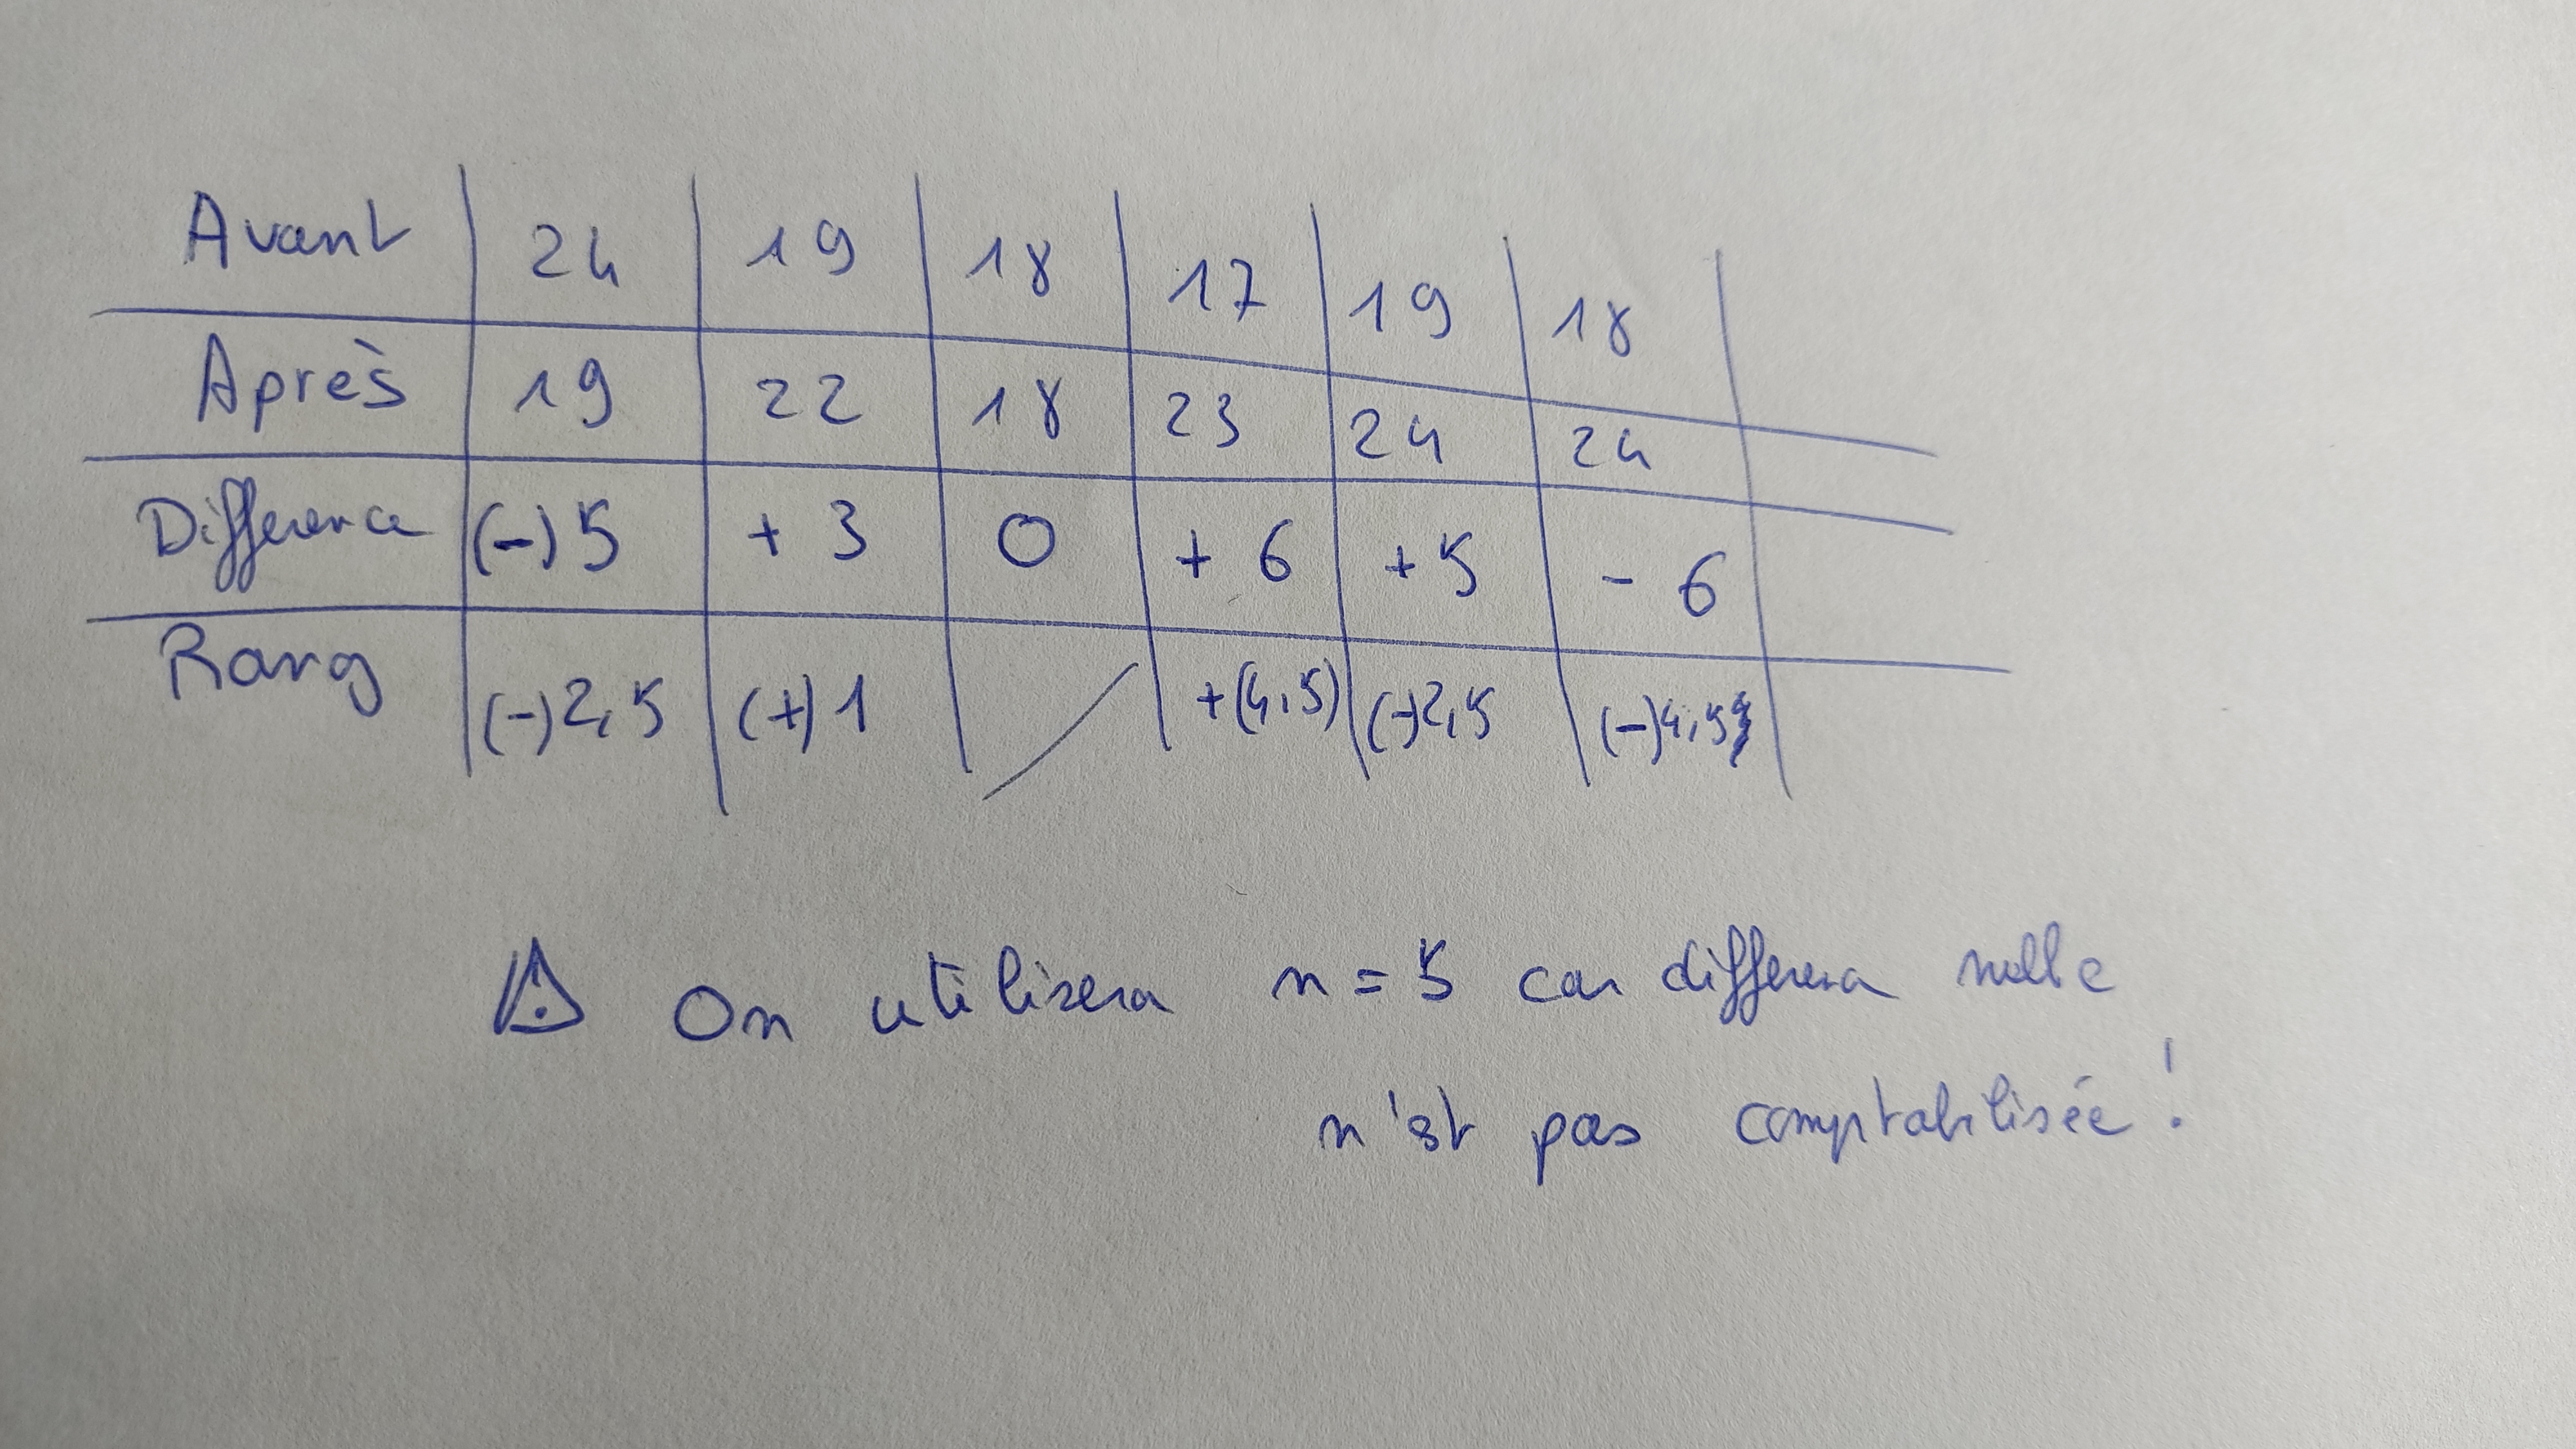 Avant 24 19 18 17 19 18
Après 19 22 18 23 24 24
Différence (-) 5 + 3 0 + 6 + 5 - 6
Rang (-) 2,5 (+) 1 +(4,5) (-) 2,5 (-) 4,5
On utilisera n = 5 car différence nulle
n'est pas comptabilisée !